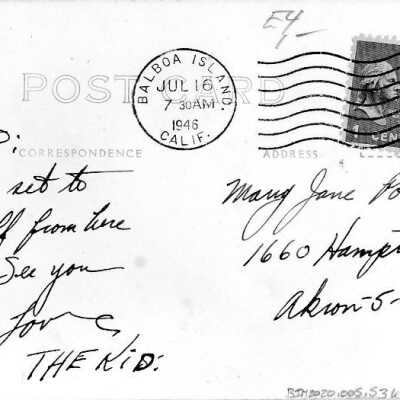 E4
POST CARD
BALBOA ISLAND.
JUL 16
7 30AM
1946
CALIF.
1 CEN
D:
CORRESPONDENCE
ADDRESS
set to
ff from here
See you
Love
THE KiD.
Mary Jane Po
1660 Hampt
Akron-5-
BIM2020.005.536